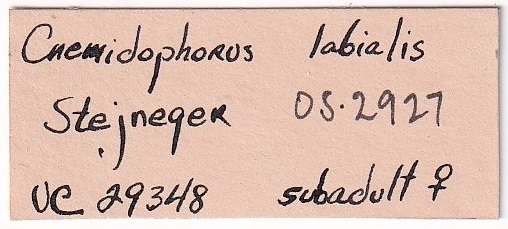 Cnemidophorus labialis
Stejneger OS.2927
UC 29348 subadult ♀